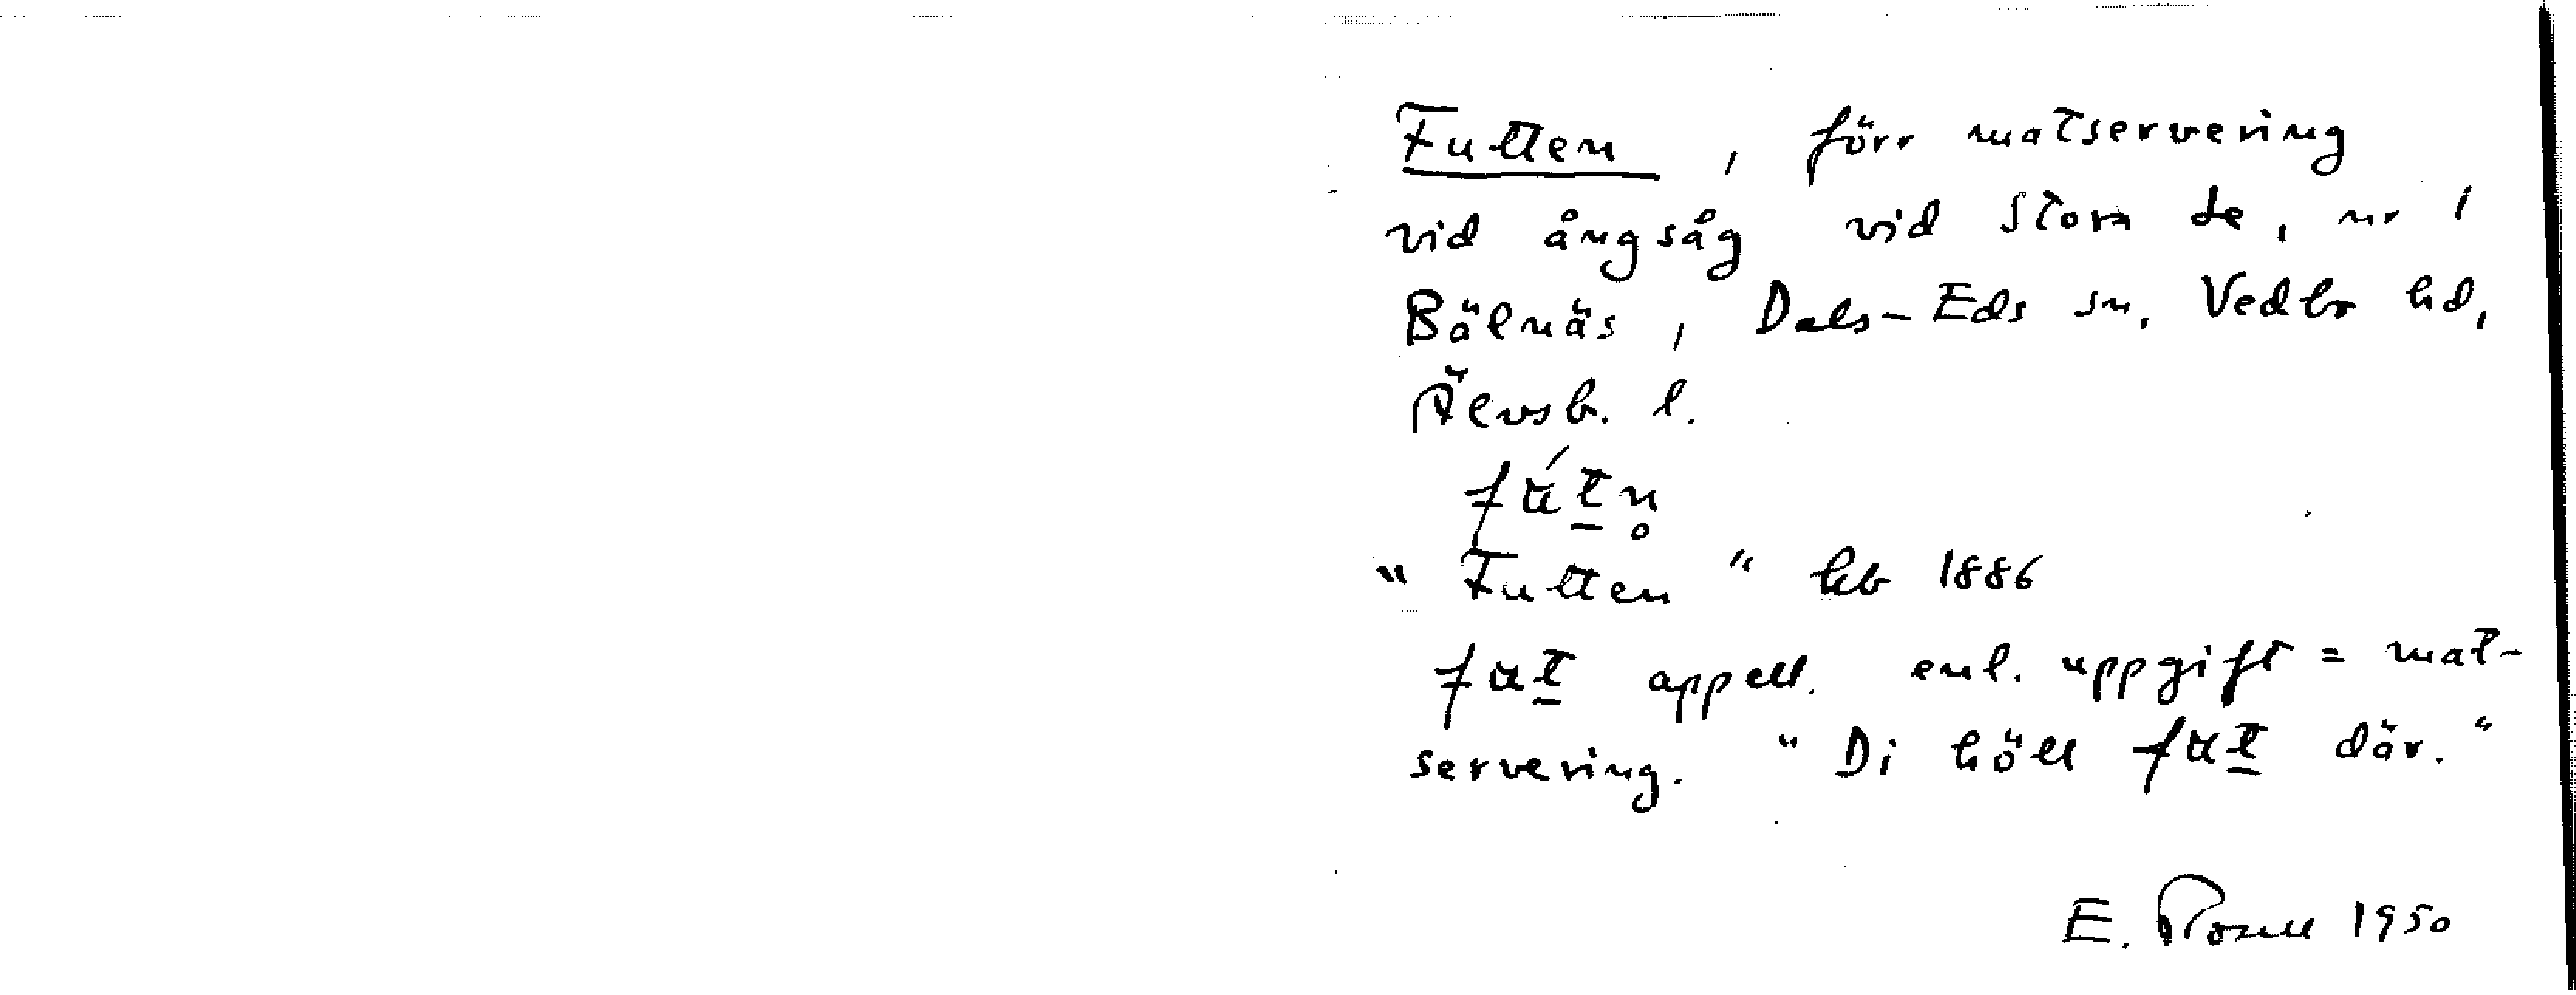 Futten, förr matservering
vid ångsåg vid Stora Le, nr 1
Bälnäs, Dals-Eds sn, Vedbo hd,
Älvsb. l.
fút̲n̥
"Futten" kb 1886
fut̲ appell. enl. uppgift = mat-
servering. "Di höll fut̲ där."
E. Rosell 1950